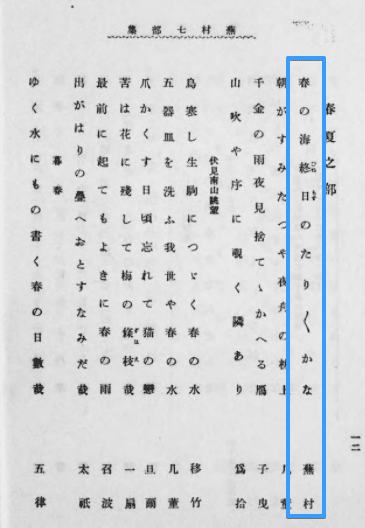 蕪村七部集
春夏之部
春の海終日のたり〱かな 蕪村
朝がすみたつや夜舟の 几董
千金の雨夜見捨てゝかへる雁 子曳
山吹や序に覗く隣あり 爲拾
伏見南山眺望
鳥寒し生駒につゞく春の水 移竹
五器皿を洗ふ我世や春の水 几董
爪かくす日頃忘れて猫の戀 旦爾
苔は花に殘して梅の條枝哉 一扇
最前に起てもよきに春の雨 召波
出がはりの疊へおとすなみだ哉 太祇
暮春
ゆく水にもの書く春の日數哉 五律
一二